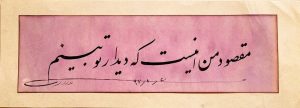 مقصود من اینست که دیدار تو بینم